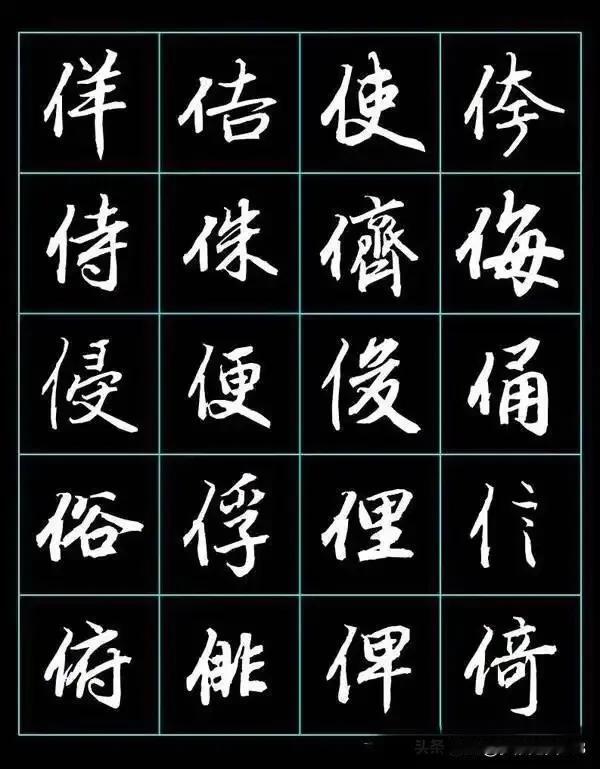 佯佶使侉
侍侏儕侮
侵便俊俑
俗俘俚信
俯俳俾倚
头条